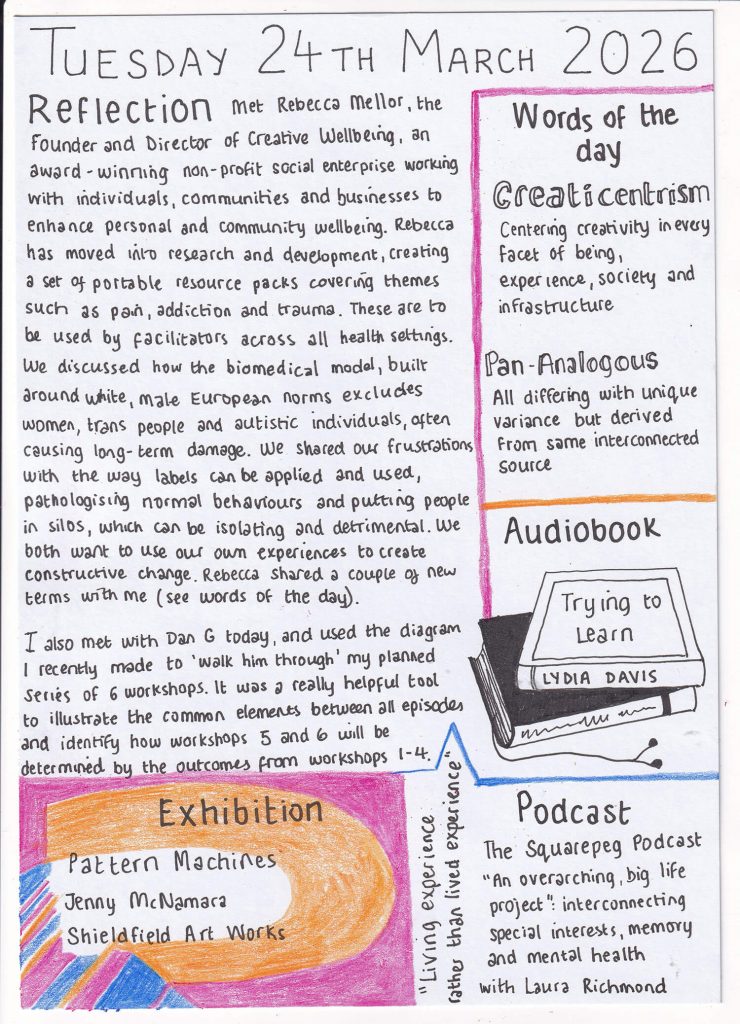 TUESDAY 24TH MARCH 2026
Reflection Met Rebecca Mellor, the
Founder and Director of Creative Wellbeing, an
award-winning non-profit social enterprise working
with individuals, communities and businesses to
enhance personal and community wellbeing. Rebecca
has moved into research and development, creating
a set of portable resource packs covering themes
such as pain, addiction and trauma. These are to
be used by facilitators across all health settings.
We discussed how the biomedical model, built
around white, male European norms excludes
women, trans people and autistic individuals, often
causing long-term damage. We shared our frustrations
with the way labels can be applied and used,
pathologising normal behaviours and putting people
in silos, which can be isolating and detrimental. We
both want to use our own experiences to create
constructive change. Rebecca shared a couple of new
terms with me (see words of the day).
I also met with Dan G today, and used the diagram
I recently made to 'walk him through' my planned
series of 6 workshops. It was a really helpful tool
to illustrate the common elements between all episodes
and identify how workshops 5 and 6 will be
determined by the outcomes from workshops 1-4.
Words of the
day
Creaticentrism
Centering creativity in every
facet of being,
experience, society and
infrastructure
Pan-Analogous
All differing with unique
variance but derived
from same interconnected
source
Audiobook
Trying to
Learn
LYDIA DAVIS
Exhibition
Pattern Machines
Jenny McNamara
Shieldfield Art Works
"Living experience
rather than lived experience"
Podcast
The Squarepeg Podcast
"An overarching, big life
project": interconnecting
special interests, memory
and mental health
with Laura Richmond